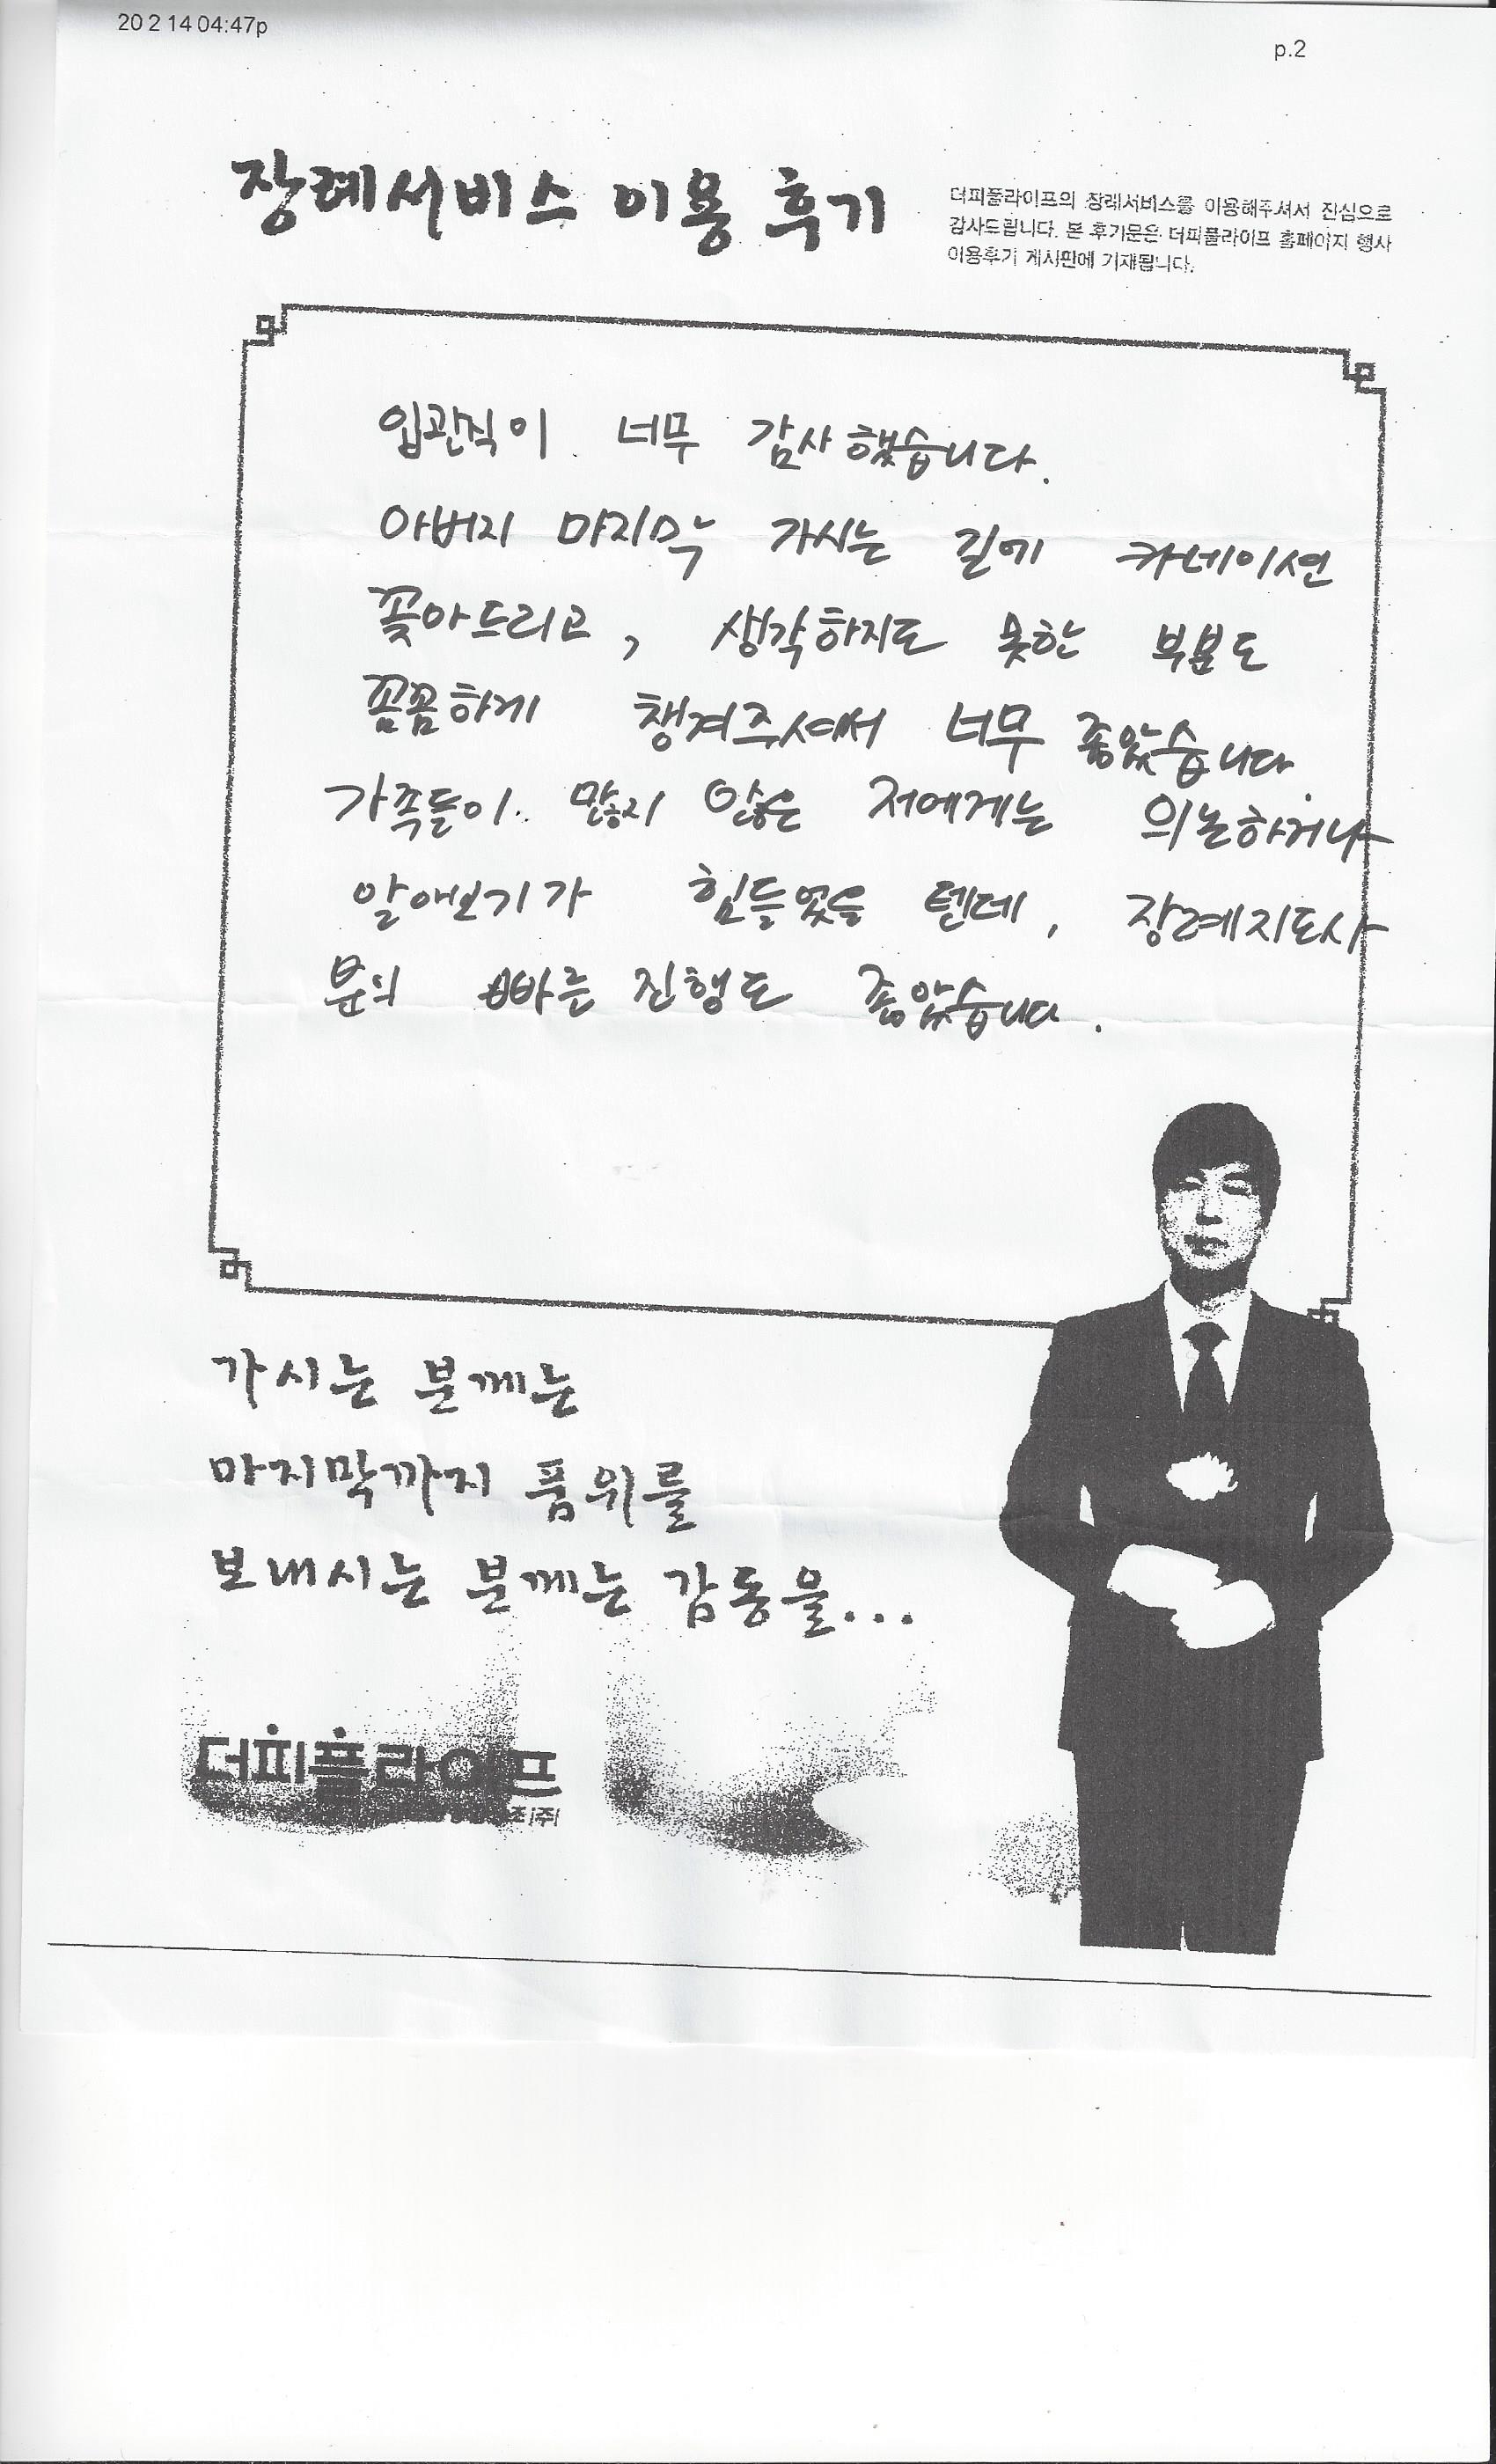 20 2 14 04:47p
p.2
장례서비스 이용 후기
더피플라이프의 장례서비스를 이용해주셔서 진심으로
감사드립니다. 본 후기문은 더피플라이프 홈페이지 행사
이용후기 게시판에 기재됩니다.
입관식이 너무 감사했습니다.
아버지 마지막 가시는 길에 카네이션
꽂아드리고, 생각하지도 못한 부분도
꼼꼼하게 챙겨주셔서 너무 좋았습니다.
가족들이 많지 않은 저에게는 의논하거나
알애보기가 힘들었을 텐데, 장례지도사
분의 빠른 진행도 좋았습니다.
가시는 분께는
마지막까지 품위를
보내시는 분께는 감동을...
더피플라이프